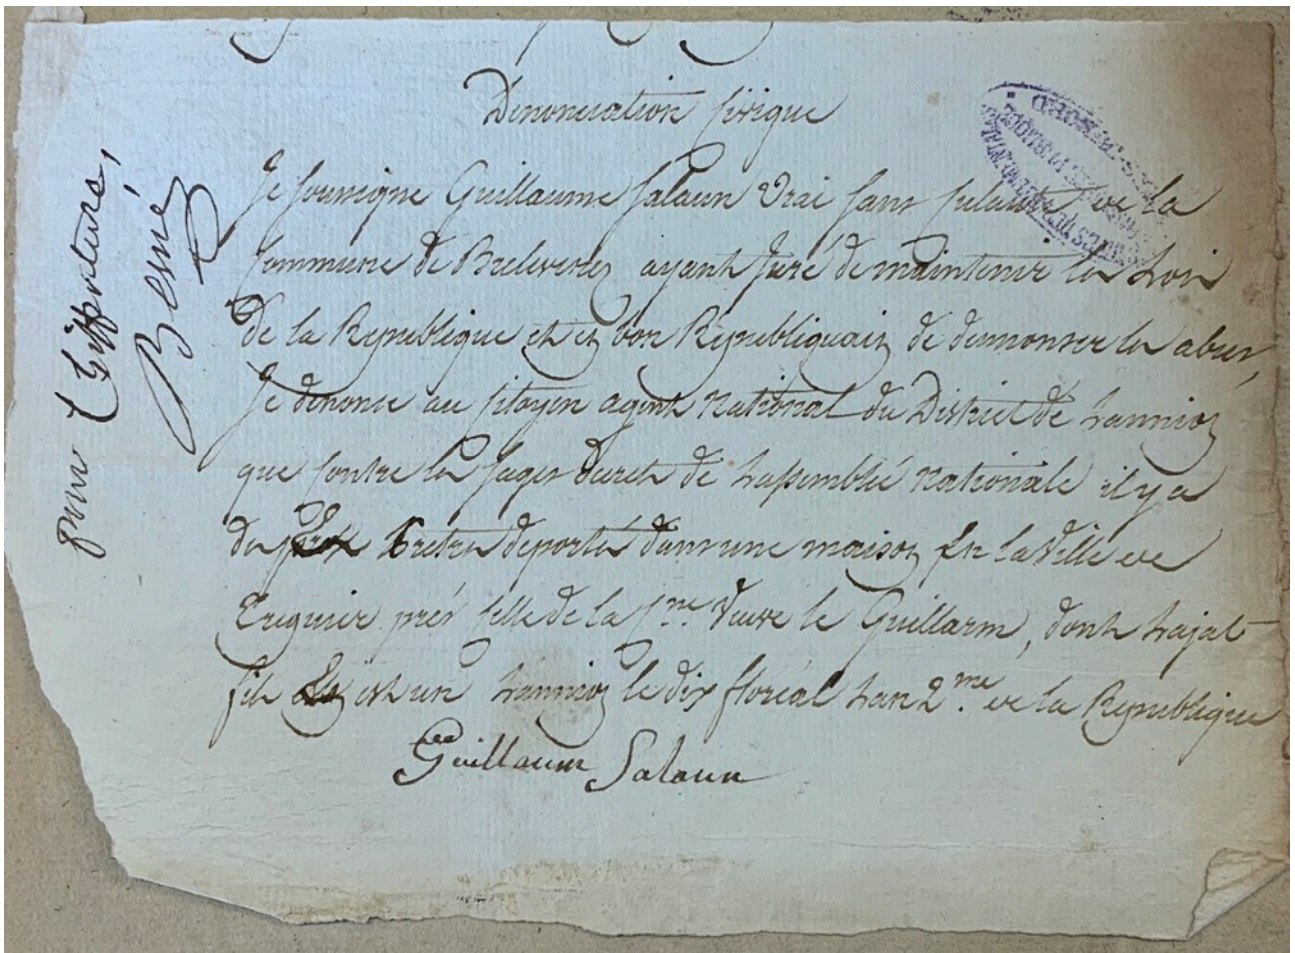 Denonciation Civique
Je soussigne Guillaume Salaun vrai sans culaute de la
Commune de Brelevenez ayant juré de maintenir les Lois
De la Republique et en bon Républiquain de denonser les abus,
Je dénonse au citoyen agent National du District de Lannion
que contre les sages decrets de Lassemblé nationale il y a
des Pretres deportés dans une maison En la ville de
Treguier près selle de la Cne. Veuve le Guillarm, dont Lajat
fils est un Lannion le dix floréal Lan 2me. de la République
Guillaume Salaun
pour
Besné